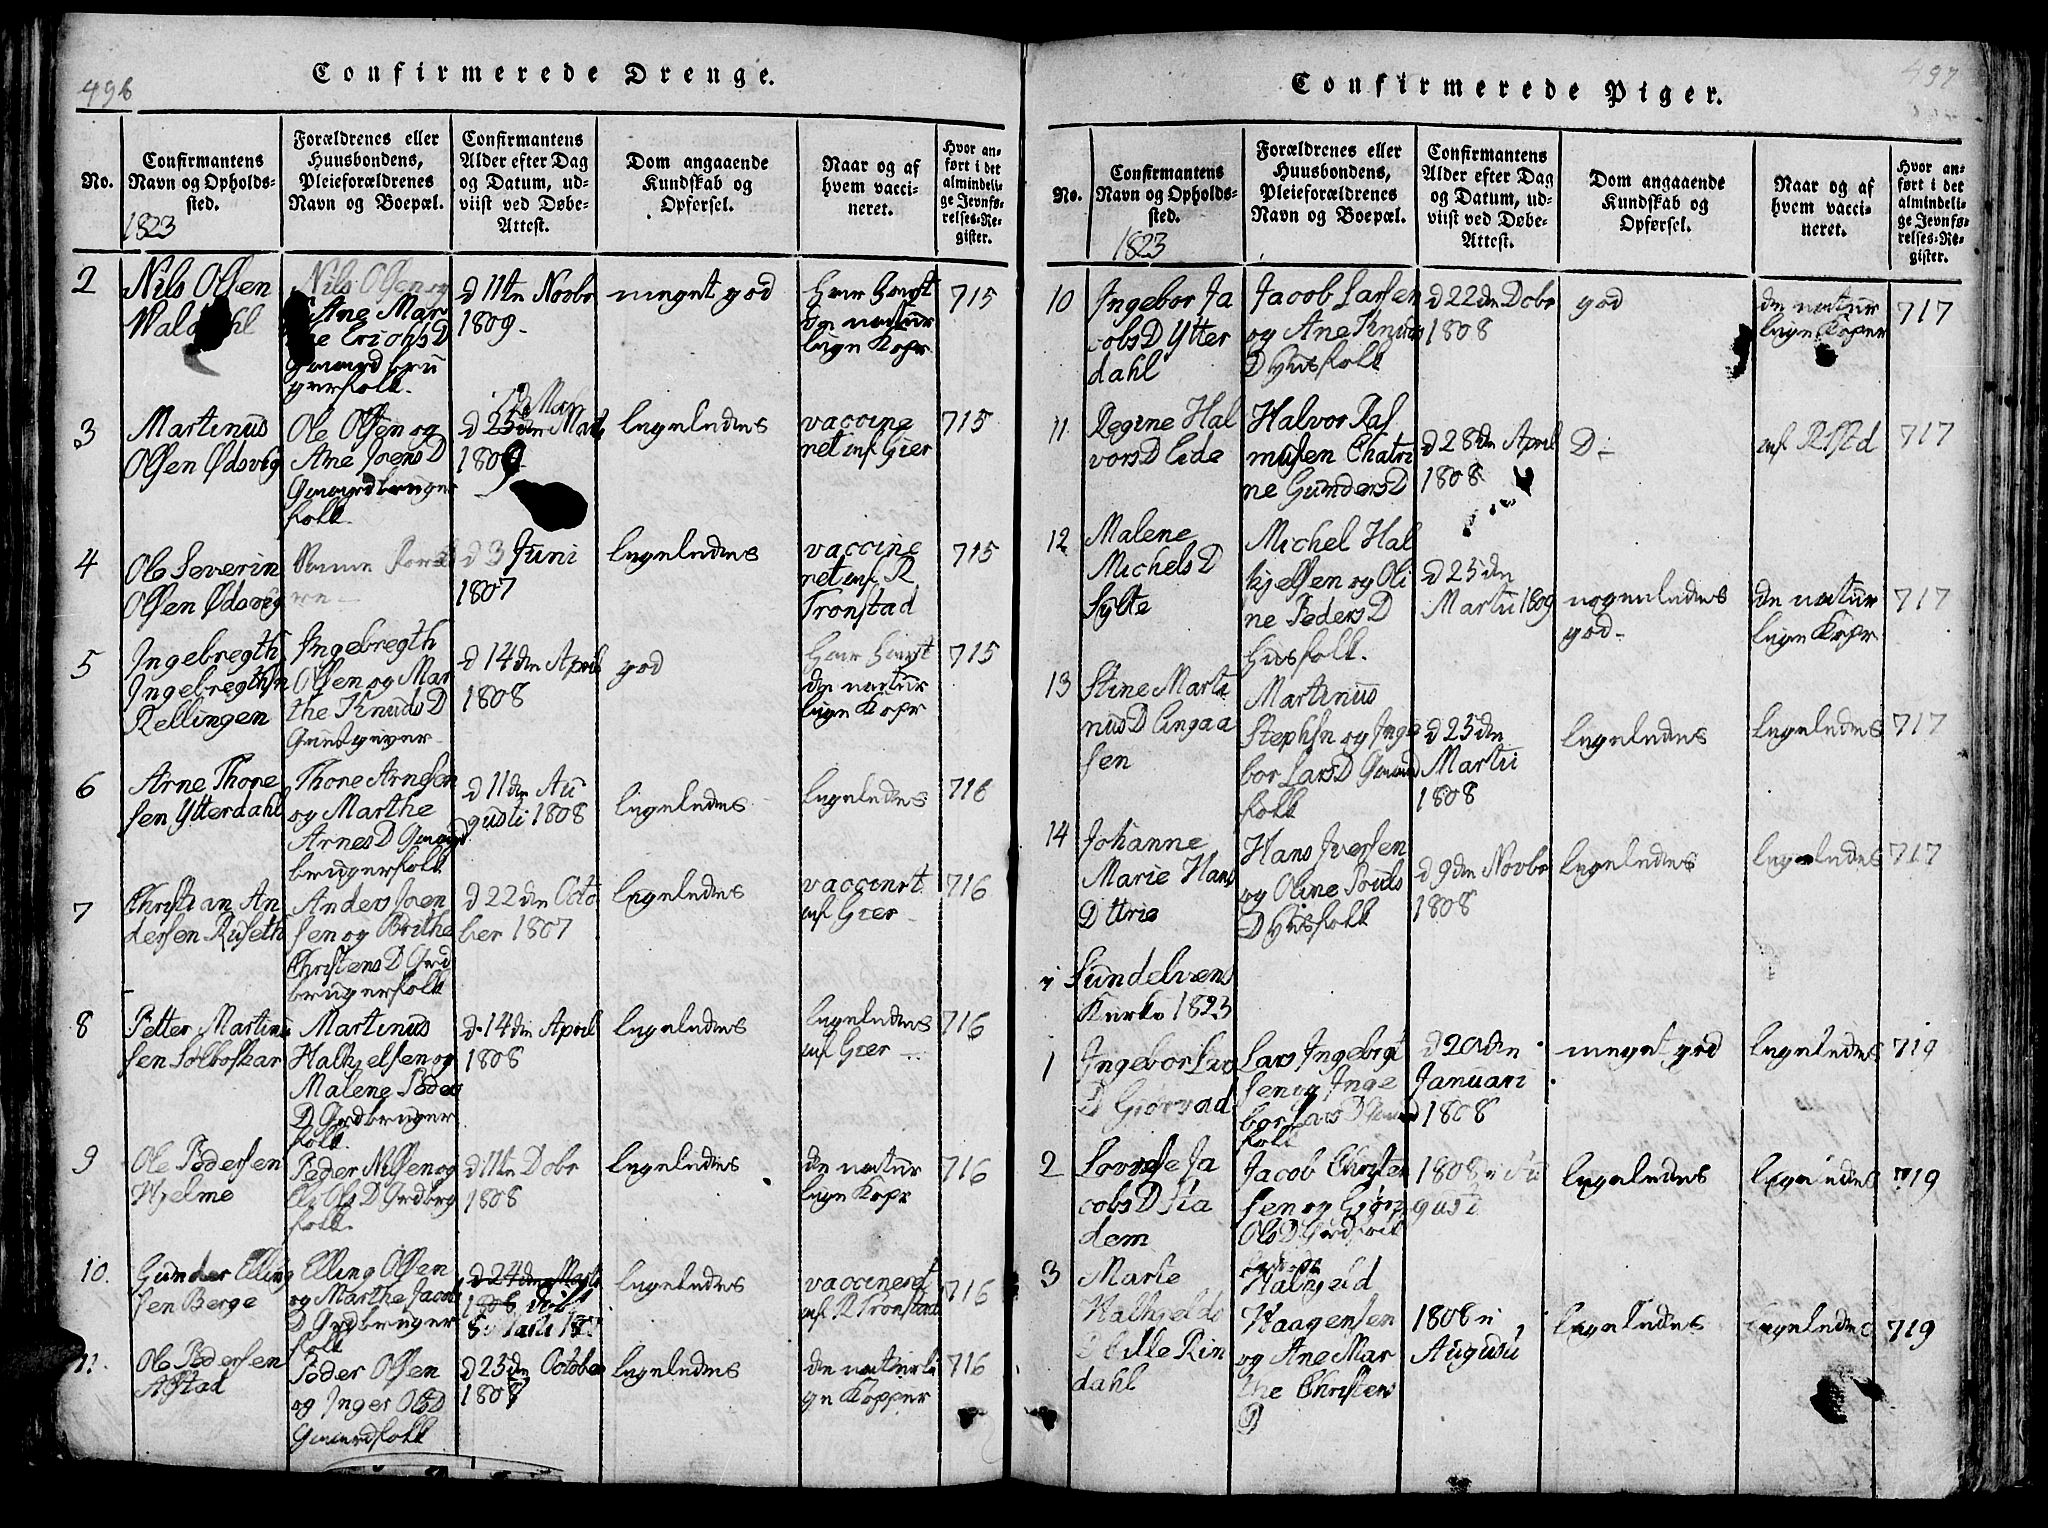 496
Confirmerede Drenge.
No.
Confirmantens Navn og Opholdssted.
1823
Forældrenes eller Huusbondens, Pleieforældrenes Navn og Boepæl.
Confirmantens Alder efter Dag og Datum, udviist ved Døbe-Attest.
Dom angaaende Kundskab og Opførsel.
Naar og af hvem vaccineret.
Hvor anført i det almindelige Jevnførelses-Register.
2
Nils Olsen
Nils Olsen og
Ane Mar
Erichs D
Gaard bru
gerfolk.
d 11te Novbr
1809.
meget god
har havt
de natur
lige Kopr
715
3
Martinus
Olsen Ødsvig
Ole Olsen og
Ane Joens D
Gaardbruger
folk.
d 25de Marti
1809
ligeledes
vaccine
ret af Gier
715
4
Ole Severin
Olsen Ødsvig
Samme Foræld
re
d 3 Juni
1807
ligeledes
vaccine
ret af R
Tronstad
715
5
Ingebregth
Ingebregthsn
Rellingen
Ingebregth
Olsen og Mar
the Knuds D
d 14de April
1808
god
har havt
de natur
lige Kopr
715
6
Arne Thore
sen Ytterdahl
Thore Arnesen
og Marthe
Arnes D Gaard
brugerfolk
d 11de Au
gusti 1808
ligeledes
ligeledes
716
7
Christian An
dersen Ruseth
Anders Joen
sen og Brithe
Christens D Grd
brugerfolk
d 22de Octo
ber 1807
ligeledes
vaccinrt
af Gier
716
8
Petter Martinu
sen Solboskar
Martinus
Halkjelsen og
Malene Peders
D Grdbruger
folk.
d. 14de April
1808
ligeledes
ligeledes
af Gier
716
9
Ole Pedersen
Hjelme
Peder Nilsen og
Ols D Grdbrg
folk.
d 11te Dobr
1808
ligeledes
de natur
lige Kopr
716
10.
Gunder Elling
sen Berge
Elling Olsen
og Marthe Jacobs
D Grdbruger
folk
d 24de Marti
ligeledes
vaccineret
af R Tronstad
716
11.
Ole Pedersen
Alstad
Peder Olsen
og Inger Ols D
Gaardfolk
d 23de October
1808
ligeledes
de naturli
ge Kopper
716
497
Confirmerede Piger.
No.
Confirmantens Navn og Opholdssted.
1823
Forældrenes eller Huusbondens, Pleieforældrenes Navn og Boepæl.
Confirmantens Alder efter Dag og Datum, udviist ved Døbe-Attest.
Dom angaaende Kundskab og Opførsel.
Naar og af hvem vaccineret.
Hvor anført i det almindelige Jevnførelses-Register.
10
Ingebor Ja
cobs D Ytter
dahl
Jacob Larsen
og Ane Knuds
D Husfolk
d 22de Dobr
1808
god
de natur
lige Kopper
717
11
Regine Hal
vors D Lide
Halvor Ras
musen Chatri
ne Gunders D
d 28de April
1808
D:
717
12
Malene
Michels D
Sylte
Michel Hal
kjelsen og Oli
ne Peders D
Husfolk.
d 25de
Martii 1809
nogenledes
god
de natur
lige Kopr
717
13
Stine Marti
nus D Lingaa
sen
Martinus
Stephsn og Inge
bor Lars D Gaard
folk
d 25de
Martii
1808
ligeledes
ligeledes
717
14
Johanne
Marie Hans
D Urie
Hans Iversen
og Oline Pouls
D Husfolk
d 9de Novbr
1808
ligeledes
ligeledes
717
i Sundelvens
Kirke 1823
1
Ingebor Lars
D Giørvad
Lars Ingebrigt
sen og Inge
bor Lars D Gaard
folk
d 20de
Januari
1808
meget god
ligeledes
719
2
Lovise Ja
cobs D
dem
Jacob Christen
sen og
Ols D Grdfolk
1808 i Au
gusti
ligeledes
ligeledes
719
3
Marie
Halkjelds
D Lille Rin
dahl
Halkjeld
Haagensen
og Ane Mar
the Christens
D
1808 i
Augusti
ligeledes
ligeledes
719